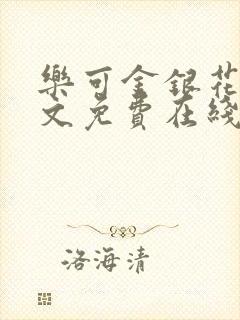 樂可金銀花
文免費在綫
洛海清